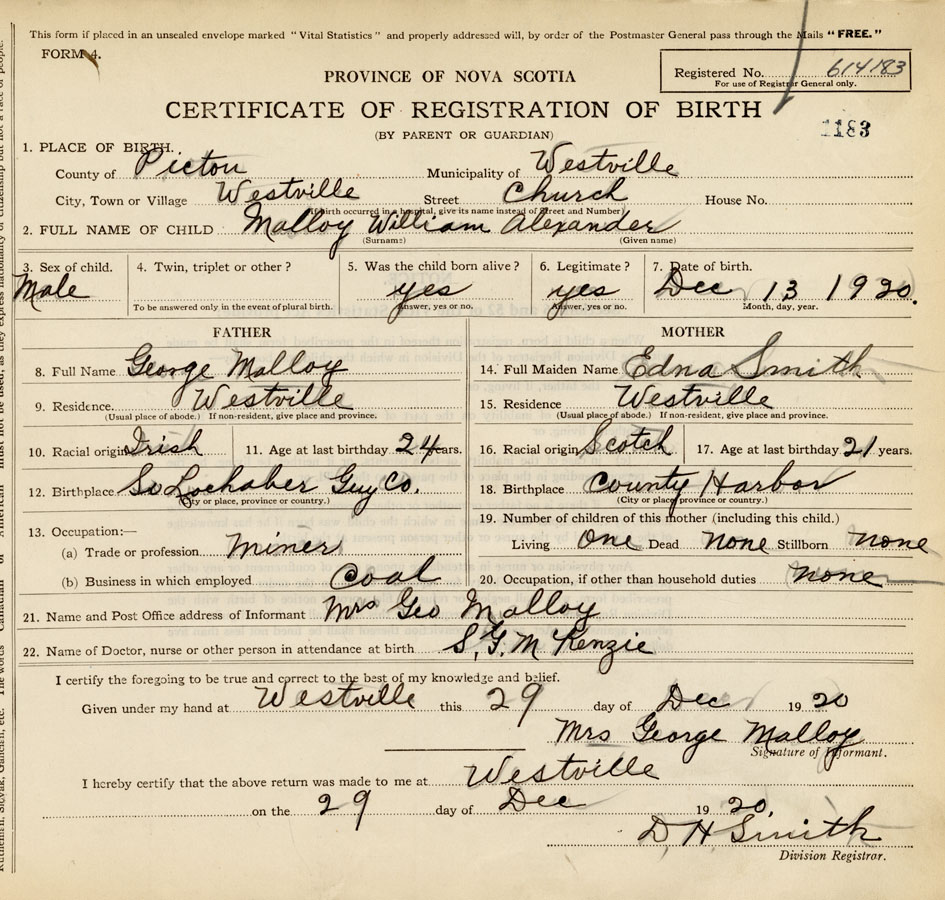 This form if placed in an unsealed envelope marked "Vital Statistics" and properly addressed will, by order of the Postmaster General pass through the Mails "FREE."
FORM 4.
Registered No. 614183
For use of Registrar General only.
PROVINCE OF NOVA SCOTIA
CERTIFICATE OF REGISTRATION OF BIRTH
(BY PARENT OR GUARDIAN)
1183
1. PLACE OF BIRTH.
County of Pictou Municipality of Westville
City, Town or Village Westville Street Church House No.
(If birth occurred in a hospital, give its name instead of Street and Number)
2. FULL NAME OF CHILD Malloy William Alexander
(Surname) (Given name)
3. Sex of child. 4. Twin, triplet or other? 5. Was the child born alive? 6. Legitimate? 7. Date of birth.
Male yes yes Dec 13 1920.
To be answered only in the event of plural birth. Answer, yes or no. Answer, yes or no. Month, day, year.
FATHER MOTHER
8. Full Name George Malloy
9. Residence. Westville
(Usual place of abode.) If non-resident, give place and province.
10. Racial origin Irish 11. Age at last birthday 24 years.
12. Birthplace So Lochaber Guy Co.
(City or place, province or country.)
13. Occupation:—
(a) Trade or profession miner
(b) Business in which employed Coal
14. Full Maiden Name Edna Smith
15. Residence Westville
(Usual place of abode.) If non-resident, give place and province.
16. Racial origin Scotch 17. Age at last birthday 21 years.
18. Birthplace County Harbor
(City or place, province or country.)
19. Number of children of this mother (including this child.)
Living One Dead none Stillborn none
20. Occupation, if other than household duties none
21. Name and Post Office address of Informant Mrs Geo Malloy
22. Name of Doctor, nurse or other person in attendance at birth S. G. McKenzie
I certify the foregoing to be true and correct to the best of my knowledge and belief.
Given under my hand at Westville this 29 day of Dec 1920
Mrs George Malloy
Signature of Informant.
I hereby certify that the above return was made to me at Westville
on the 29 day of Dec 1920.
D H Smith
Division Registrar.